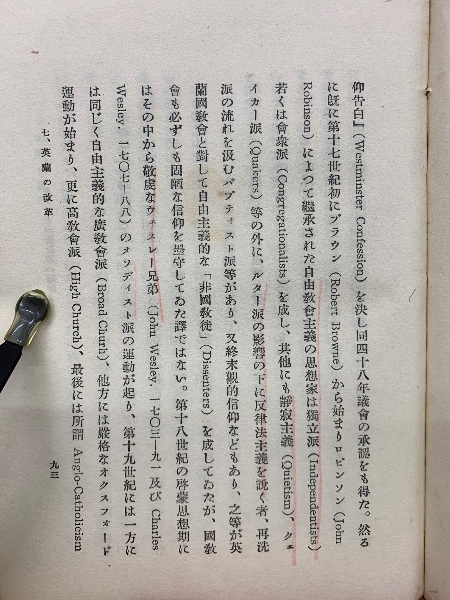 仰吿白』(Westminster Confession)を決し同四十八年議會の承認をも得た。然る
に旣に第十七世紀初にブラウン(Robert Browne)から始まりロビンソン(John
Robinson)によつて繼承された自由敎會主義の思想家は獨立派(Independentists)
若くは會衆派(Congregationalists)を成し、其他にも靜寂主義(Quietism)、クェ
イカー派(Quakers)等の外に、ルター派の影響の下に反律法主義を說く者、再洗
派の流れを汲むバプティスト派等があり、又終末觀的信仰などもあり、之等が英
蘭國敎會と對して自由主義的な「非國敎徒」(Dissenters)を成してゐたが、國敎
會も必ずしも固陋な信仰を墨守してゐた譯ではない。第十八世紀の啓蒙思想期に
はその中から敬虔なウェスレー兄弟(John Wesley. 一七〇三—九一 及び Charles
Wesley. 一七〇七—八八)のメソディスト派の運動が起り、第十九世紀には一方に
は同じく自由主義的な廣敎會派(Broad Churh)、他方には嚴格なオクスフォード
運動が始まり、更に高敎會派(High Church)、最後には所謂 Anglo-Catholicism
七、英蘭の改革
九三